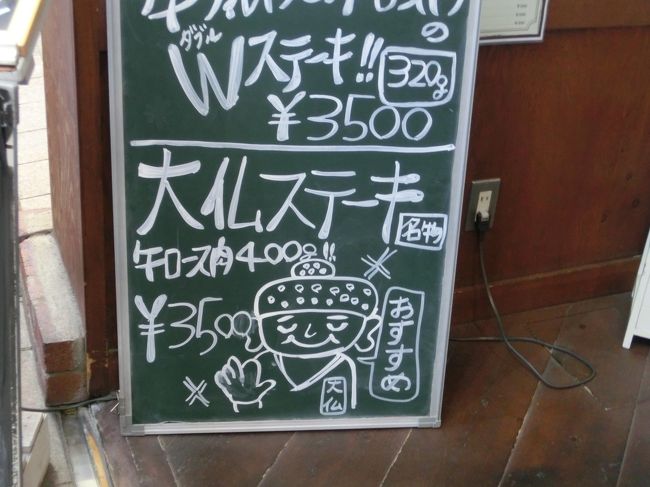 の
ダブル
Wステーキ!! 320g
¥3500
大仏ステーキ
名物
牛ロース肉400g!!
¥3500
おすすめ
大仏